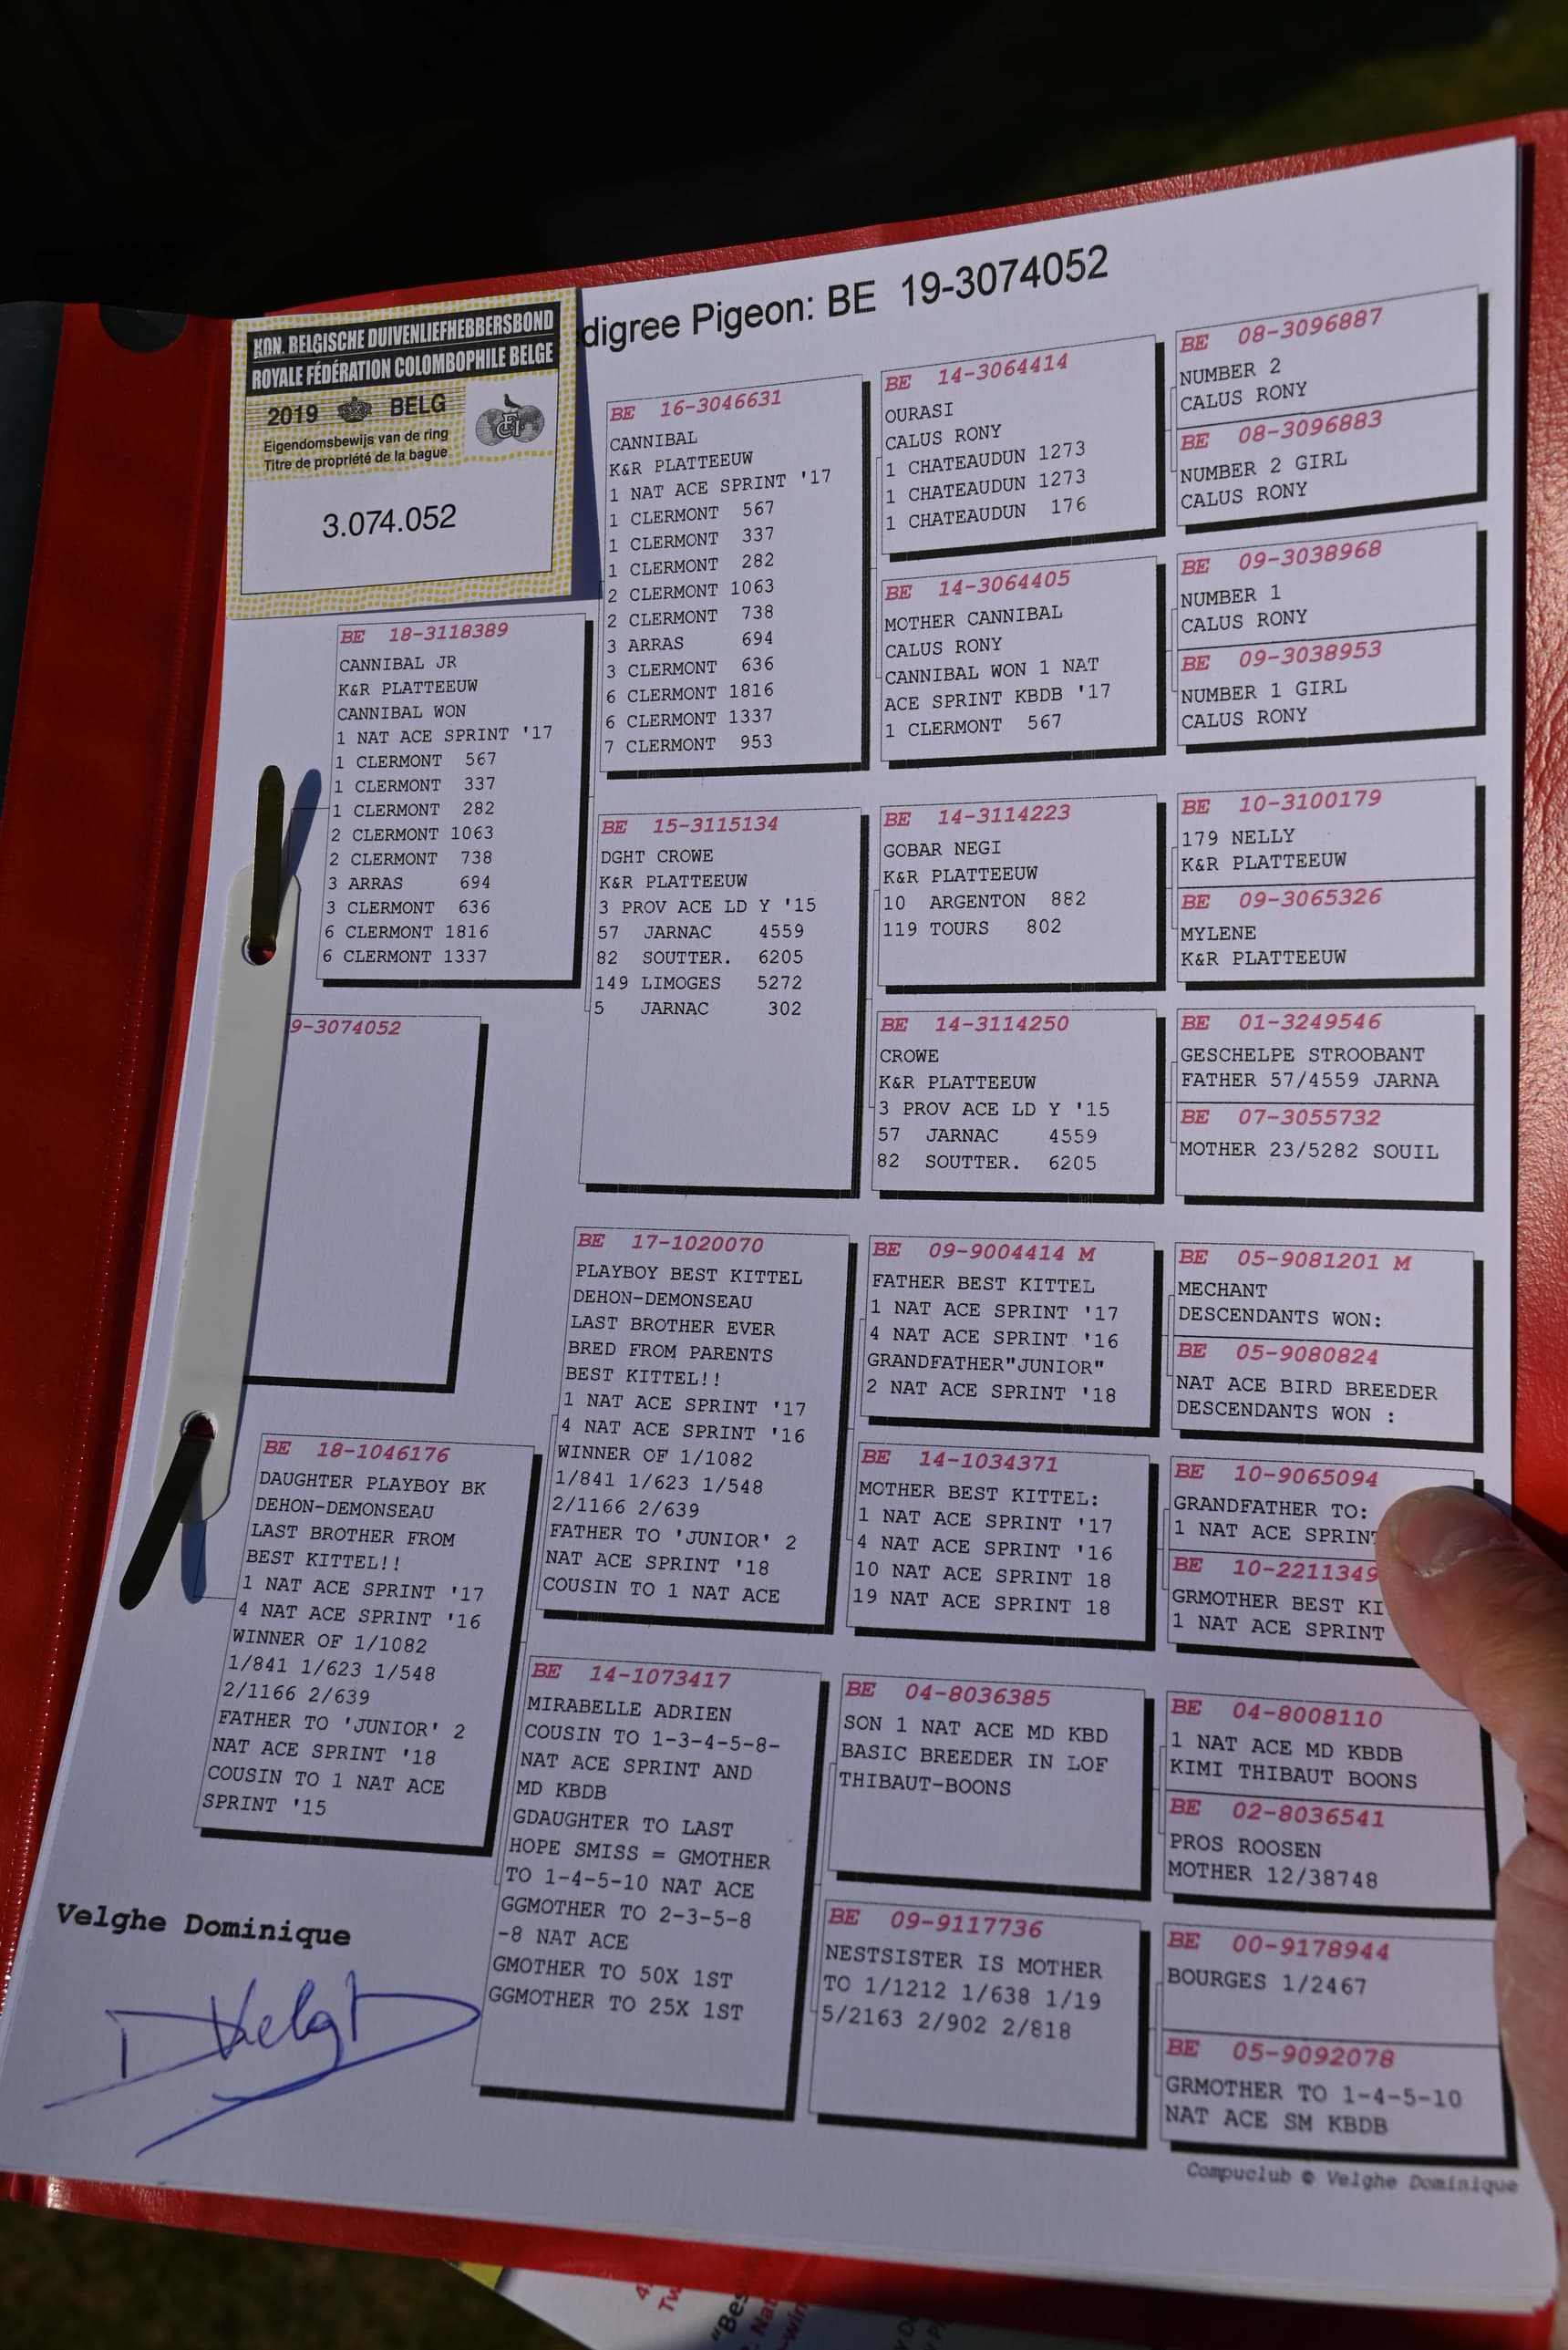 digree Pigeon: BE 19-3074052
KON. BELGISCHE DUIVENLIEFHEBBERSBOND
ROYALE FÉDÉRATION COLOMBOPHILE BELGE
2019 BELG
Eigendomsbewijs van de ring
Titre de propriété de la bague
3.074.052
BE 18-3118389
CANNIBAL JR
K&R PLATTEEUW
CANNIBAL WON
1 NAT ACE SPRINT '17
1 CLERMONT 567
1 CLERMONT 337
1 CLERMONT 282
2 CLERMONT 1063
2 CLERMONT 738
3 ARRAS 694
3 CLERMONT 636
6 CLERMONT 1816
6 CLERMONT 1337
9-3074052
BE 18-1046176
DAUGHTER PLAYBOY BK
DEHON-DEMONSEAU
LAST BROTHER FROM
BEST KITTEL!!
1 NAT ACE SPRINT '17
4 NAT ACE SPRINT '16
WINNER OF 1/1082
1/841 1/623 1/548
2/1166 2/639
FATHER TO 'JUNIOR' 2
NAT ACE SPRINT '18
COUSIN TO 1 NAT ACE
SPRINT '15
Velghe Dominique
BE 16-3046631
CANNIBAL
K&R PLATTEEUW
1 NAT ACE SPRINT '17
1 CLERMONT 567
1 CLERMONT 337
1 CLERMONT 282
2 CLERMONT 1063
2 CLERMONT 738
3 ARRAS 694
3 CLERMONT 636
6 CLERMONT 1816
6 CLERMONT 1337
7 CLERMONT 953
BE 15-3115134
DGHT CROWE
K&R PLATTEEUW
3 PROV ACE LD Y '15
57 JARNAC 4559
82 SOUTTER. 6205
149 LIMOGES 5272
5 JARNAC 302
BE 17-1020070
PLAYBOY BEST KITTEL
DEHON-DEMONSEAU
LAST BROTHER EVER
BRED FROM PARENTS
BEST KITTEL!!
1 NAT ACE SPRINT '17
4 NAT ACE SPRINT '16
WINNER OF 1/1082
1/841 1/623 1/548
2/1166 2/639
FATHER TO 'JUNIOR' 2
NAT ACE SPRINT '18
COUSIN TO 1 NAT ACE
BE 14-1073417
MIRABELLE ADRIEN
COUSIN TO 1-3-4-5-8-
NAT ACE SPRINT AND
MD KBDB
GDAUGHTER TO LAST
HOPE SMISS = GMOTHER
TO 1-4-5-10 NAT ACE
GGMOTHER TO 2-3-5-8
-8 NAT ACE
GMOTHER TO 50X 1ST
GGMOTHER TO 25X 1ST
BE 14-3064414
OURASI
CALUS RONY
1 CHATEAUDUN 1273
1 CHATEAUDUN 1273
1 CHATEAUDUN 176
BE 14-3064405
MOTHER CANNIBAL
CALUS RONY
CANNIBAL WON 1 NAT
ACE SPRINT KBDB '17
1 CLERMONT 567
BE 14-3114223
GOBAR NEGI
K&R PLATTEEUW
10 ARGENTON 882
119 TOURS 802
BE 14-3114250
CROWE
K&R PLATTEEUW
3 PROV ACE LD Y '15
57 JARNAC 4559
82 SOUTTER. 6205
BE 09-9004414 M
FATHER BEST KITTEL
1 NAT ACE SPRINT '17
4 NAT ACE SPRINT '16
GRANDFATHER"JUNIOR"
2 NAT ACE SPRINT '18
BE 14-1034371
MOTHER BEST KITTEL:
1 NAT ACE SPRINT '17
4 NAT ACE SPRINT '16
10 NAT ACE SPRINT 18
19 NAT ACE SPRINT 18
BE 04-8036385
SON 1 NAT ACE MD KBD
BASIC BREEDER IN LOF
THIBAUT-BOONS
BE 09-9117736
NESTSISTER IS MOTHER
TO 1/1212 1/638 1/19
5/2163 2/902 2/818
BE 08-3096887
NUMBER 2
CALUS RONY
BE 08-3096883
NUMBER 2 GIRL
CALUS RONY
BE 09-3038968
NUMBER 1
CALUS RONY
BE 09-3038953
NUMBER 1 GIRL
CALUS RONY
BE 10-3100179
179 NELLY
K&R PLATTEEUW
BE 09-3065326
MYLENE
K&R PLATTEEUW
BE 01-3249546
GESCHELPE STROOBANT
FATHER 57/4559 JARNA
BE 07-3055732
MOTHER 23/5282 SOUIL
BE 05-9081201 M
MECHANT
DESCENDANTS WON:
BE 05-9080824
NAT ACE BIRD BREEDER
DESCENDANTS WON :
BE 10-9065094
GRANDFATHER TO:
1 NAT ACE SPRINT
BE 10-2211349
GRMOTHER BEST KI
1 NAT ACE SPRINT
BE 04-8008110
1 NAT ACE MD KBDB
KIMI THIBAUT BOONS
BE 02-8036541
PROS ROOSEN
MOTHER 12/38748
BE 00-9178944
BOURGES 1/2467
BE 05-9092078
GRMOTHER TO 1-4-5-10
NAT ACE SM KBDB
Compuclub © Velghe Dominique